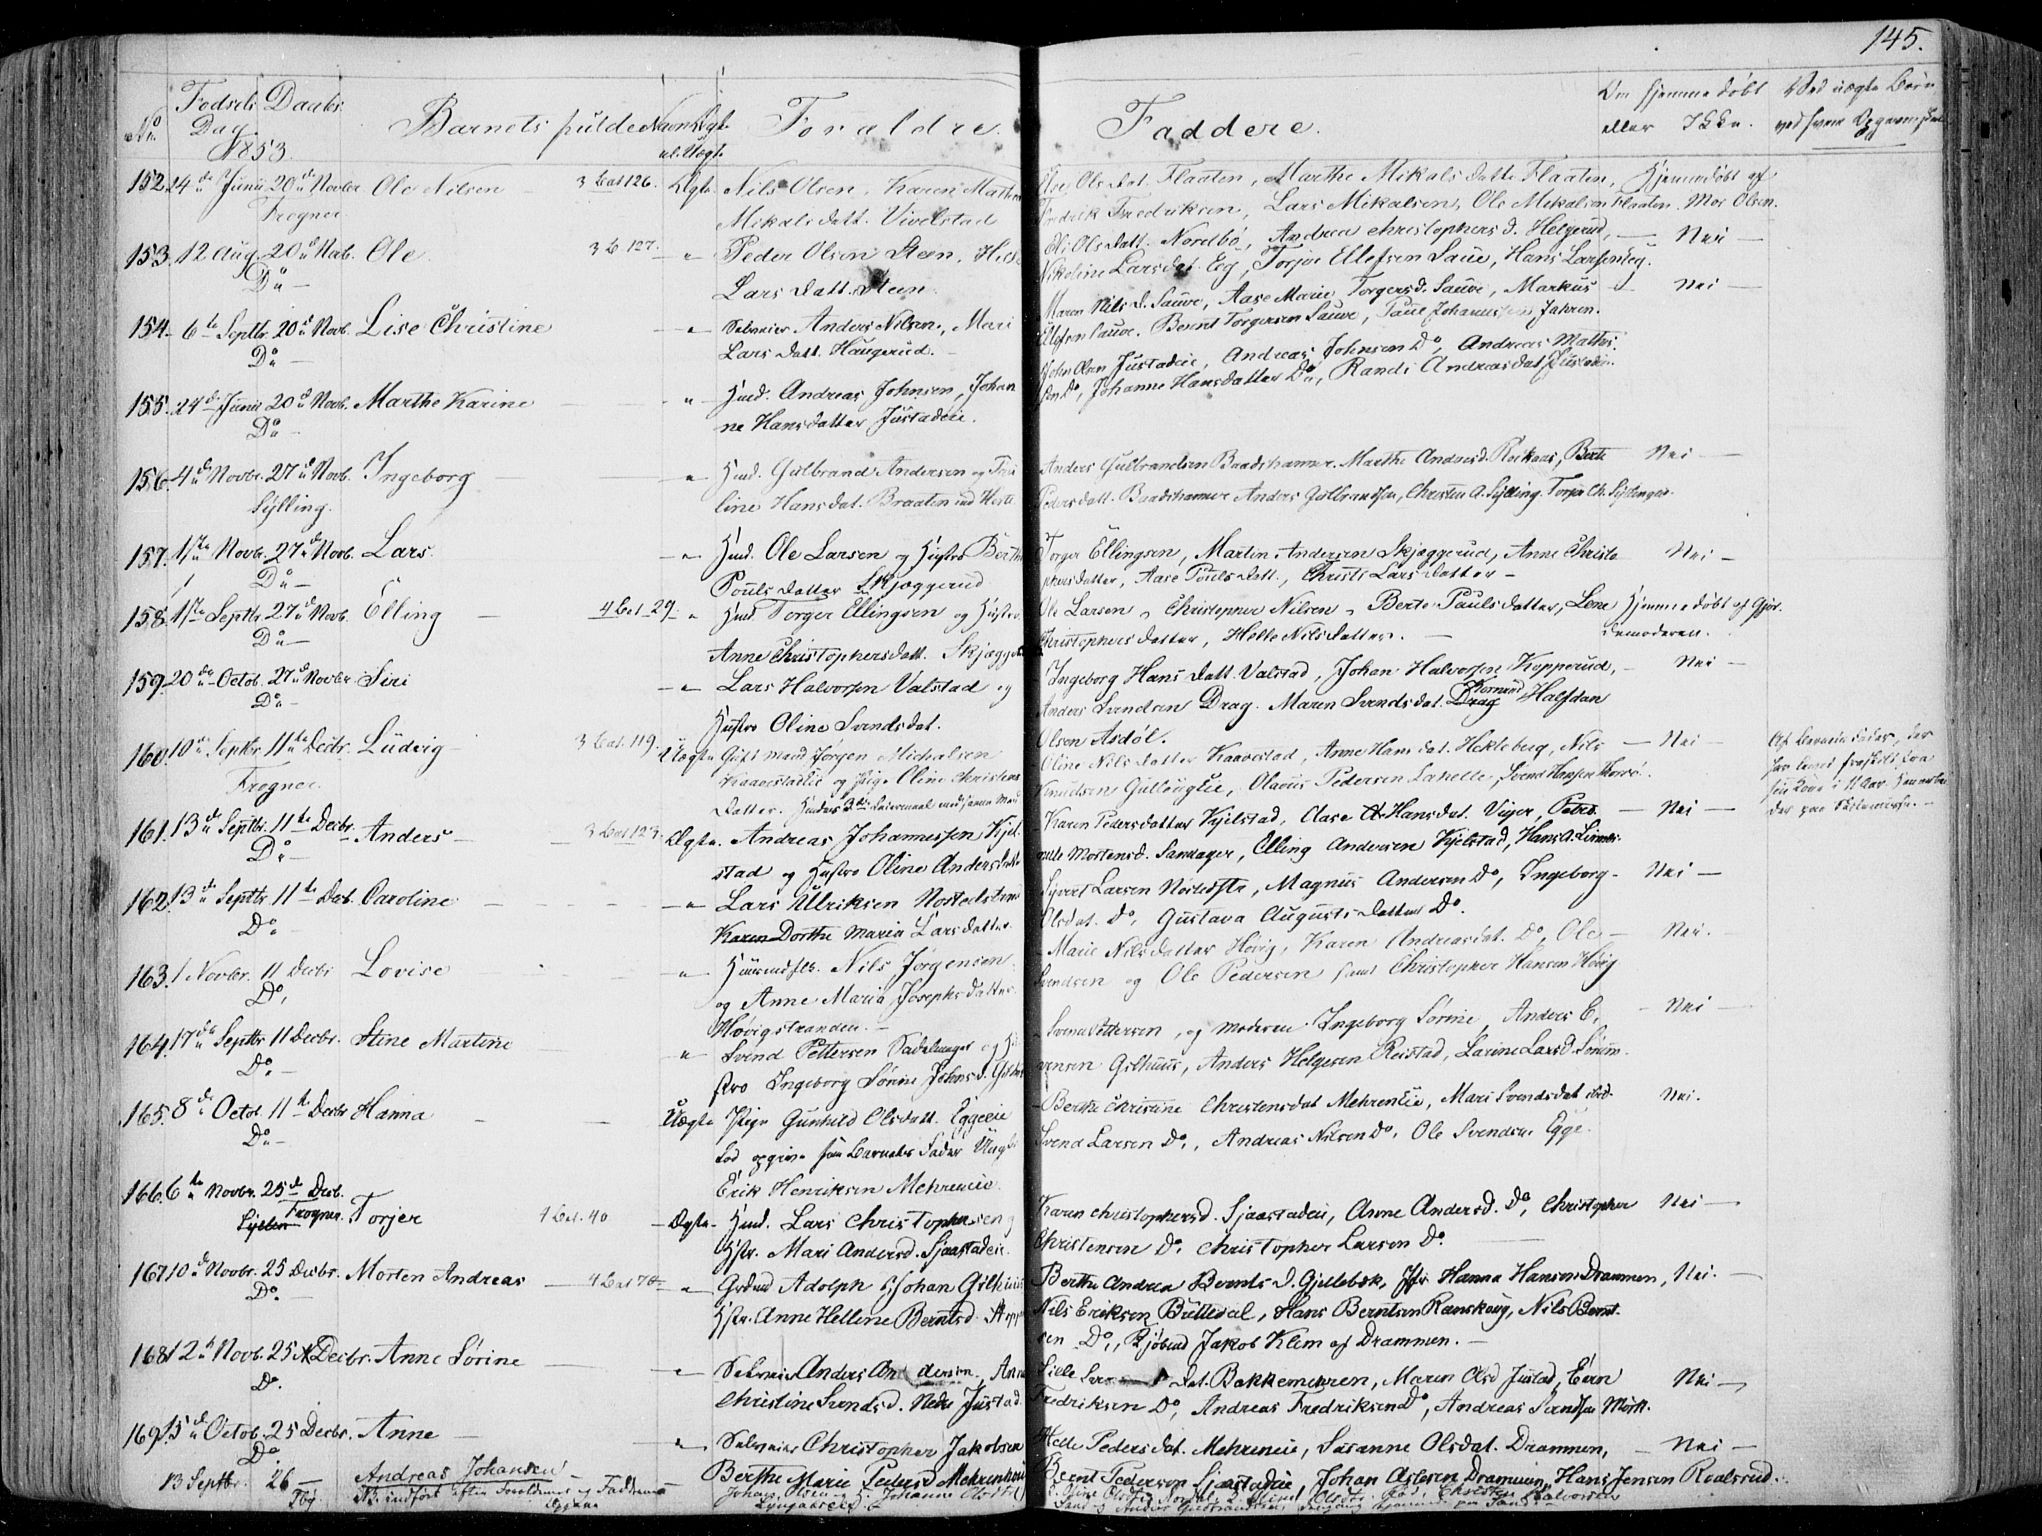 145.
No
Fødsels Daabs
Dag
1853.
Barnets fulde Navn
Ægte
el. Uægte
Forældre.
Faddere.
Om hjemmedøbt
eller Ikke.
Ved uægte Børn
152. 24de Junii 20de Novbr Ole Nilsen 3 Cat 126. Ægte. Nils Olsen, Karen Mathea
Frogner
Mikalsdatt. Vivelstad
Olsdat. Flaaten, Marthe Mikalsdatte Flaaten, Hjemmedøbt af
Fredrik Fredriksen, Lars Mikalsen, Ole Mikalsen Flaaten. Mor Olsen.
153. 12 Aug. 20d Nob. Ole 3 C 127. " Peder Olsen Steen, Helle
Do
Larsdatt. Steen.
Eli Olsdatt. Nordbø, Andrea Christophersd. Helgerud, — Nei —
Nikoline Larsdat. Eeg, Torjer Ellefsen Saue, Hans Larsen Eeg.
154. 6te Septbr. 20d Novb. Lise Christine " Selveier Anders Nilsen, Mari
Do
Larsdatt. Haugerud.
Maren Nilsd. Sauve, Aase Marie Torgersd. Sauve, Markus Nei —
Ellefsen Sauve. Bernt Torgersen Sauve, Paul Johannessen Jahren.
155. 24d Junii 20d Novb. Marthe Karine " Hmd. Andreas Johnsen, Johan
Do
ne Hansdatter Justadeie.
John Olsen Justadeie, Andreas Johnsen Do, Andreas Mathis
sen Do, Johanne Hansdatter Do, Randi Andreasdat Justadeie.
156. 4de Novbr. 27d Novb. Ingeborg " Hmd. Gulbrand Andersen og
Sylling.
line Hansdat. Braaten
Anders Gulbrandsen Baadshammer. Marthe Andersd. Berte Nei —
Pedersdatt. Baadshammer Anders Gulbrandsen, Christen A. Sylling. Torjer Ch. Syllinger.
157. 1ste Novbr. 27de Novb. Lars. " Hmd. Ole Larsen og Hustro Berthe
Do
Poulsdatter Skjæggerud
Torger Ellingsen, Martin Andersen Skjæggerud, Anne Christo Nei —
phersdatter, Aase Poulsdatt., Christi Larsdatter —
158. 1ste Septbr 27d Novb. Elling 4 Cat. 29. " Hmd. Torger Ellingsen og Hustro
Do
Anne Christophersdatt. Skjægge
Ole Larsen, Christopher Nilsen, Berte Paulsdatter, Lene Hjemmedøbt af Gjor
Christophersdatter, Helle Nilsdatter. demoderen.
159. 20de Octob. 27d Novbr Siri " Lars Halvorsen Valstad og
Do
Hustro Oline Svendsdat.
Ingeborg Hansdatt. Valstad, Johan Halvorsen Kopperud, Nei —
Anders Svendsen Drag. Maren Svendsdat. Drag Halfdan
Olsen Asdøl.
160. 10de Septbr 11te Decbr. Ludvig 3 Cat. 119. Uægte Gift mand Jørgen Michalsen
Frogner
Kaaverstadeie og Pige Oline Christens
datter.
Oline Nilsdatter Kaaverstad, Anne Hansdat. Hekleberg, Nils — Nei —
Knudsen Gulløugeie, Olaves Pedersen Lahelle, Svend Hansen
161. 13de Septbr. 11te Decbr. Anders 3 Cat 123. Ægte. Andreas Johannessen Kjel
Do
stad og Hustro Oline Andersdatte
Karen Pedersdatter Kjelstad, Aase Hansdat. Viger, Petro — Nei —
nelle Mortensd. Sandager, Elling Andersen Kjelstad, Hans A. Linnes
162. 13de Septbr 11te Decb. Caroline " Lars Ulriksen Nostedstrand
Do.
Karen Dorthe Maria Larsdatter
Syvert Larsen Nosted, Magnus Andersen Do, Ingeborg — Nei —
Olsdat. Do, Gustava Augustsdatter Do.
163. 1 Novbr. 11 Decbr Lovise " Huusmdslb. Nils Jørgensen
Do,
og Anne Maria Josephsdatter
Høvigstranden.
Marie Nilsdatter Høvig, Karen Andreasdat. Do, Ole — Nei.
Svendsen og Ole Pedersen samt Christopher Hansen Høvig
164. 17de Septbr 11 Decbr. Stine Martine " Svend Pettersen Sadelmager og Hu
Do.
stro Ingeborg Sørine Johnsd. Gilhus
Svend Pettersen, og moderen Ingeborg Sørine, Anders E. — Nei —
vensen Gilhuus, Anders Helgesen Reistad, Larine Larsd. Sørum.
165. 8de Octob. 11te Decbr Hanna Uægte Pige Gunhild Olsdatt. Eggeeie
Do
Lod opgive som Barnets Fader Ungk.
Erik Henriksen Mehreneie.
Berthe Christine Christensdat Mehreneie, Mari Svendsdat ibid. Nei.
Svend Larsen Do, Andreas Nilsen Do. Ole Svendsen Egge.
166. 6te Novbr. 25de Decb. Torjer 1 Cat. 40 Ægte. Hmd. Lars Christophersen og
Sylling Frogner
Hstr. Mari Andersd. Sjaastadeie.
Karen Christophersd. Sjaastadeie, Anne Andersd. Do, Christopher Nei —
Christensen Do, Christopher Larsen Do
167. 10de Novbr. 25 Decbr. Morten Andreas 4 Cat 70 " Grdmd Adolph Johan Gilhuus
Do.
Hstr. Anne Helline Berntsd.
Berthe Andrea Berntsd. Gjellebek, Jfr. Hanna Hansen Drammen, Nei. —
Nils Eriksen Bulledal, Hans Berntsen Ranskoug, Nils Bernt
sen Do, Kjøbmd Jakob Klem af Drammen. —
168. 12te Novb. 25 Decbr. Anne Sørine " Selveier Anders Andersen, Anne
Do.
Christine Svendsd. Nedre Justad.
Sille dat. Bakkemehren, Maren Olsd Justad, Even Nei —
Fredriksen Do, Andreas Fredriksen Do, Andreas Svendsen Mørk.
169. 15de Octob. 25 Decbr. Anne " Selveier Christopher Jakobsen
Do
Berthe Marie Pedersd Mehreneie
Helle Pedersdat. Mehreneie, Susanne Olsdat. Drammen, — Nei —
Bernt Pedersen Sjaastadeie, Johan Aslesen Drammen, Hans Jensen Roalsrud.
13 Septbr. 26 — Andreas Johansen
Johan Olsen og Johanne Olsdtr
NB. indført efter Forældrenes og Faddernes
Opgave